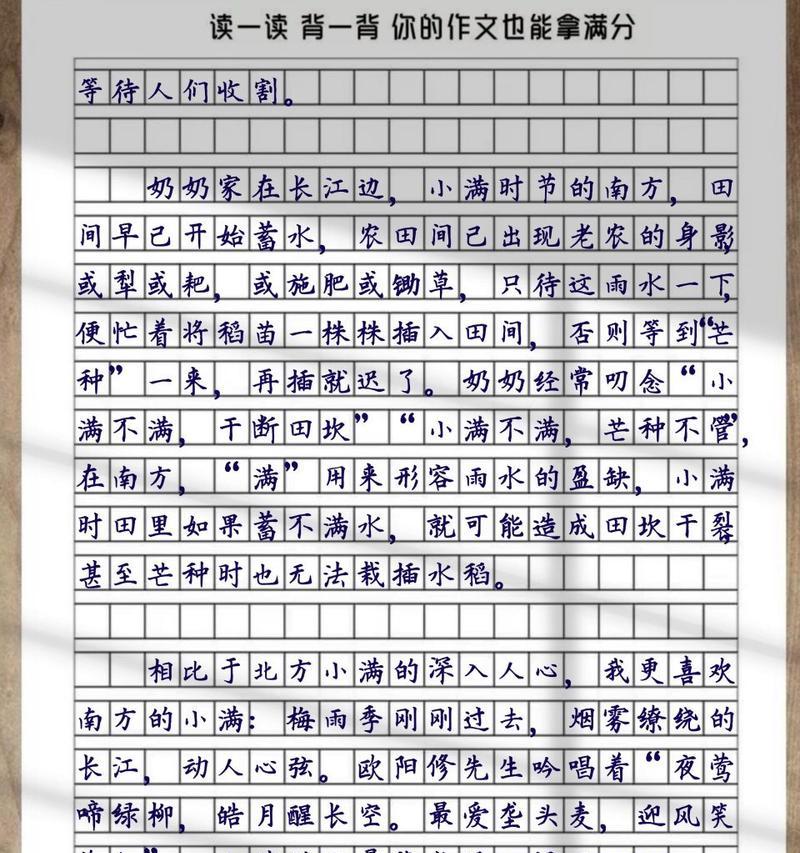 读一读 背一背 你的作文也能拿满分
等待人们收割。
奶奶家在长江边，小满时节的南方，田
间早已开始蓄水，农田间已出现老农的身影，
或犁或耙，或施肥或锄草，只待这雨水一下，
便忙着将稻苗一株株插入田间，否则等到“芒
种”一来，再插就迟了。奶奶经常叨念“小
满不满，干断田坎”“小满不满，芒种不管”，
在南方，“满”用来形容雨水的盈缺，小满
时田里如果蓄不满水，就可能造成田坎干裂，
甚至芒种时也无法栽插水稻。
相比于北方小满的深入人心，我更喜欢
南方的小满：梅雨季刚刚过去，烟雾缭绕的
长江，动人心弦。欧阳修先生吟唱着“夜莺
啼绿柳，皓月醒长空。最爱垄头麦，迎风笑